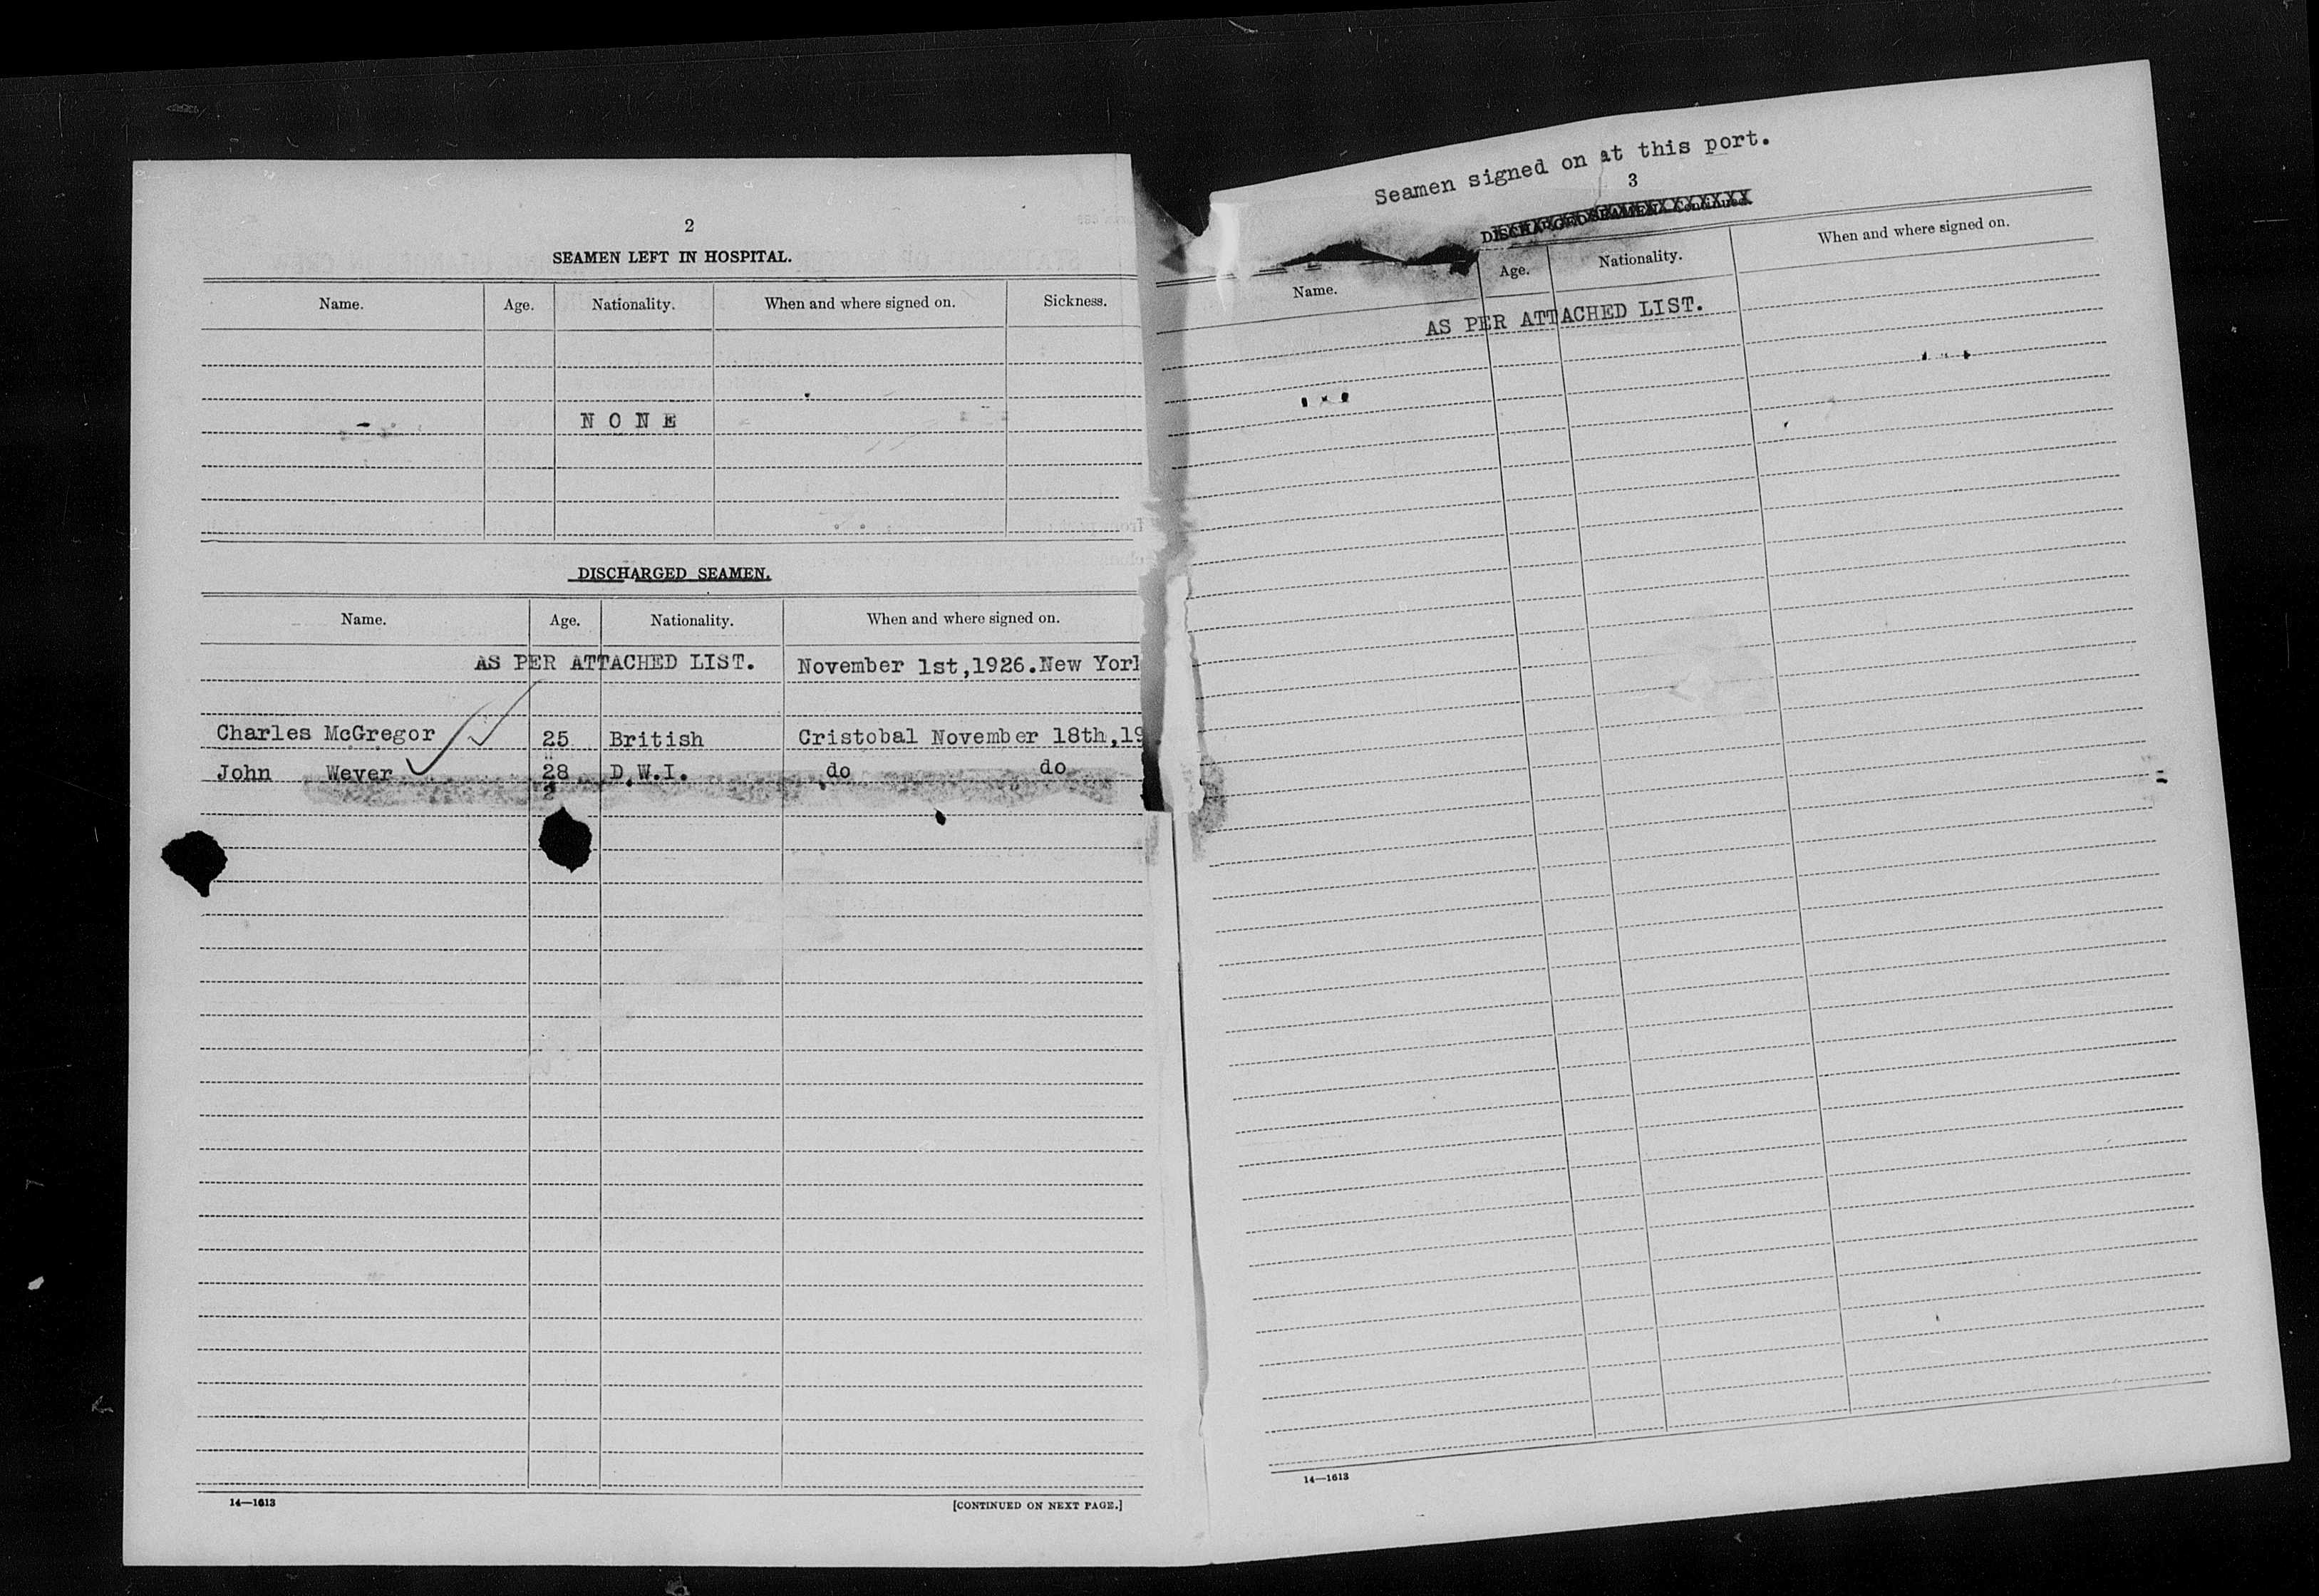 2
SEAMEN LEFT IN HOSPITAL.
Name. Age. Nationality. When and where signed on. Sickness.
N O N E
DISCHARGED SEAMEN.
Name. Age. Nationality. When and where signed on.
AS PER ATTACHED LIST. November 1st,1926.New York
Charles McGregor 25 British Cristobal November 18th,19
John Wever 28 D.W.I. do do
14—1613 [CONTINUED ON NEXT PAGE.]
Seamen signed on at this port.
3
DISCHARGED SEAMEN—Continued.
Name. Age. Nationality. When and where signed on.
AS PER ATTACHED LIST.
14—1613